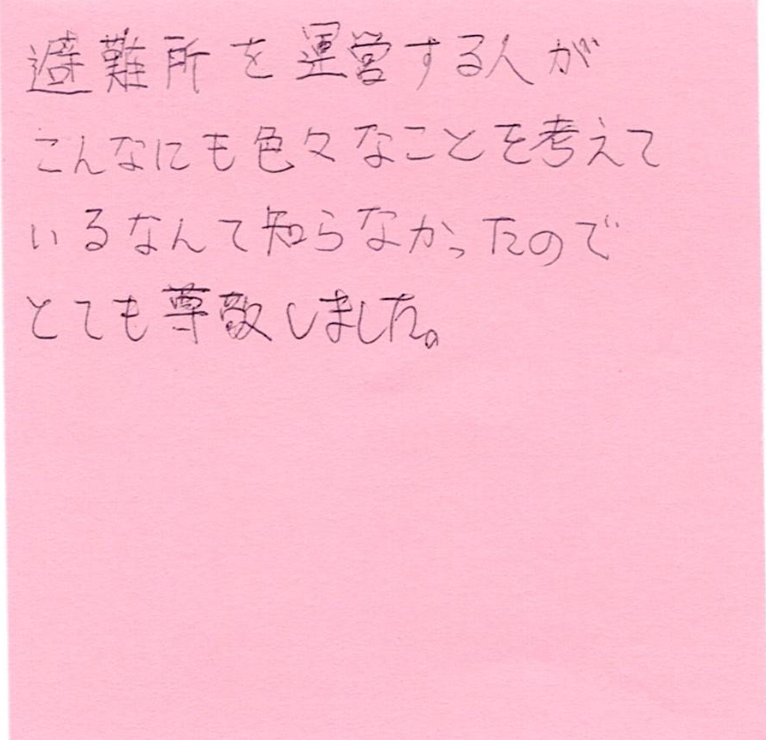 避難所を運営する人が
こんなにも色々なことを考えて
いるなんて知らなかったので
とても尊敬しました。